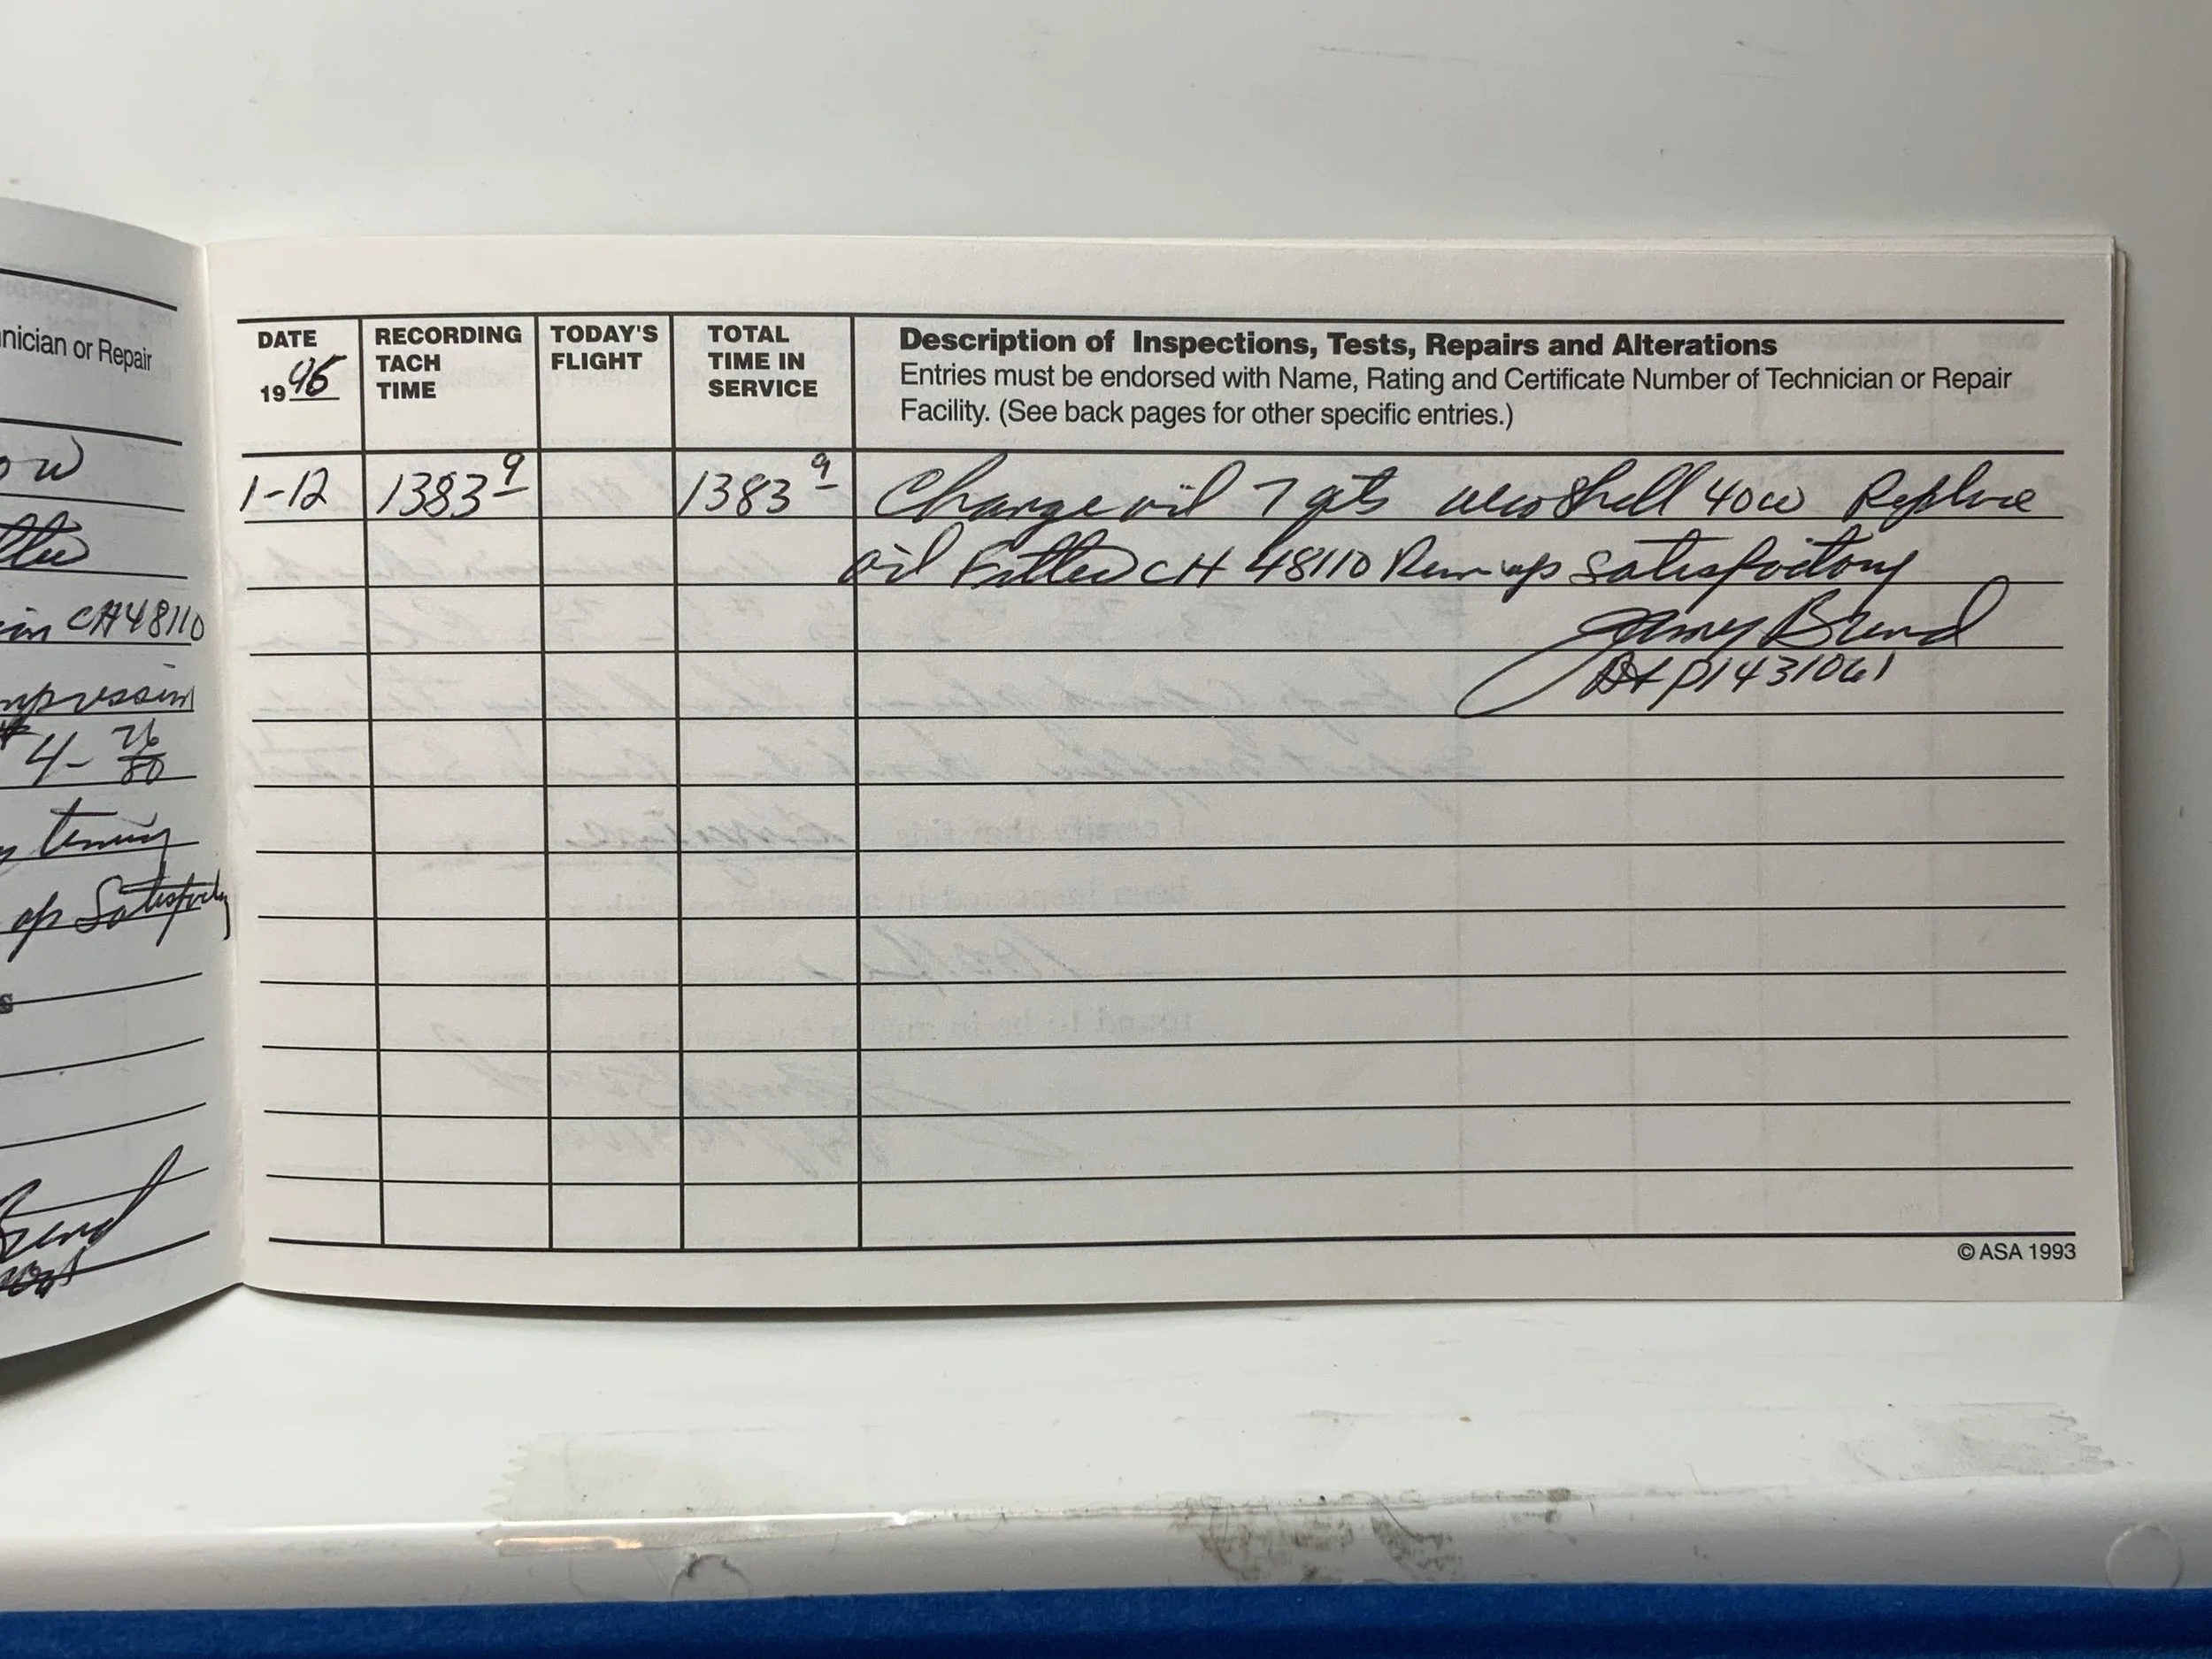 nician or Repair
ow
in CH48110
mpression
#4- 76/80
timing
up Satisfactory
s
DATE
1996
RECORDING
TACH
TIME
TODAY'S
FLIGHT
TOTAL
TIME IN
SERVICE
Description of Inspections, Tests, Repairs and Alterations
Entries must be endorsed with Name, Rating and Certificate Number of Technician or Repair
Facility. (See back pages for other specific entries.)
1-12 1383 9 1383 9 Change oil 7 qts Shell 40W Replace
oil Filter CH 48110 Run-up Satisfactory
A&P 1431061
© ASA 1993